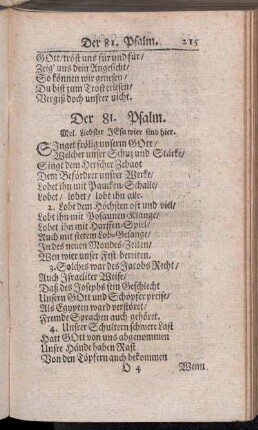 Der 81. Psalm. 215
GOtt/ tröst uns für und für/
Zeig' uns dein Angesicht/
So können wir genesen/
Du bist zum Trost erlesen/
Vergiß doch unser nicht.
Der 81. Psalm.
Mel. Liebster JEsu wier sind hier.
SInget frölig unserm GOtt/
Welcher unser Schuz und Stärke/
Singt dem Herscher Zebaot
Dem Befördrer unser Werke/
Lobet ihn mit Paucken-Schalle/
Lobet/ lobet/ lobt ihn alle.
2. Lobt dem Höchsten oft und viel/
Lobt ihn mit Posaunen-Klange/
Lobet ihn mit Harffen-Spiel/
Auch mit stetem Lob-Gesange/
In des neuen Mondes-Zeiten/
Wen wier unser Fest bereiten.
3. Solches war des Jacobs Recht/
Auch Israeliter Weise/
Daß des Josephs sein Geschlecht
Unsern GOtt und Schöpfer preise/
Als Egypten ward verstöret/
Fremde Sprachen auch gehöret.
4. Unser Schultern schwere Last
Hatt GOtt von uns abgenommen
Unsre Hände haben Rast
Von den Töpfern auch bekommen
O 4 Wenn